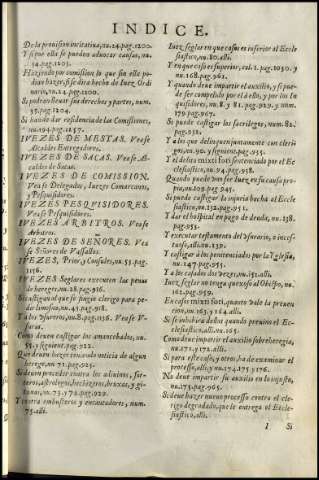 INDICE.
De la prouision inuitatiua, nu.24.pag.1200.
Y si que ella se pueden aduocar causas, nu.
24.pag.1203.
Haziendo por comission lo que sin ella po-
dia hazer, si se dira hecho de Iuez Ordi
nario, nu.24.pag.1200.
Si podran lleuar sus derechos y partes, num.
35.pag.1204.
Si podran dar residencia de las Comissiones,
nu.194.pag.1257.
IVEZES DE MESTAS. Vease
Alcaldes Entregadores.
IVEZES DE SACAS. Vease Al-
caldes de Sacas.
IVEZES DE COMISSION,
Vease Delegados, Iuezes Comarcanos,
y Pesquisidores.
IVEZES PESQVISIDORES.
Vease Pesquisidores.
IVEZES ARBITROS. Vease
Arbitros.
IVEZES DE SEÑORES. Vea
se Señores de Vassallos.
IVEZES, Prior, y Consules, nu.55.pag.
1156.
IVEZES Seglares executen las penas
de hereges, nu.28.pag.916.
Si castigan al que se fingio clerigo para pe-
dir limosna, nu.41.pag.918.
Y a los vsureros, nu.8.pag.1116. Vease V-
suras.
Como deuen castigar los amancebados, nu.
55.y siguientes, pag.922.
Que deuan hazer teniendo noticia de algun
herege, nu.72.pag.925.
Si deuen proceder contra los adiuinos, sor-
teros, astrologos, hechizeros, bruxas, y gi-
tanas, nu.73.y 74.pag.929.
Y contra embusteros y encantadores, num.
75.alli.
Iuez seglar en que casos es inferior al Eccle
siastico, nu.80.alli.
Y en que caso es superior, col.2.pag.1030. y
nu.168.pag.962.
Y quando deue impartir el auxilio, y si pue-
de ser compelido por el à ello, y por los In
quisidores, nu.8. y 81.pag.929. y num.
179.pag.967.
Si puede castigar los sacrilegos, num. 82.
pag.932.
Y a los que delinquen juntamente con cleri-
gos, nu.90. y siguientes, pag.955.
Y el delito mixti fori sentenciado por el Ec-
clesiastico, nu.94.pag.958.
Quando puede ser Iuez en su causa pro-
pia, nu.109.pag.945.
Si puede castigar la injuria hecha al Eccle
siastico, nu.132.pag.951.
Y dar el hospital en pago de deuda, nu.138.
pag.951.
Y executar testamento del vsurario, o ince-
stuoso, alli, nu.139.
Y castigar à los penitenciados por la Yglesia,
nu.147.pag.955.
Y a los casados dos vezes, nu.151.alli.
Iuez seglar no tenga quexoso al Obispo, nu.
162.pag.959.
En caso mixti fori, quanto vale la preuen
cion, nu.163.y 164.alli.
Si se inhibira donde quando preuino el Ec-
clesiastico, alli, nu.165.
Como deue impartir el auxilio sobre heregia,
nu.171.y 172. alli.
Si para este caso, y otros ha de examinar el
processo, alli, y nu.174.175.y 176.
No deue impartir su auxilio en lo injusto,
nu.175.pag.965.
Si deue hazer nueuo processo contra el cle-
rigo degradado, que le entrega el Eccle-
siastico, alli.
I Si